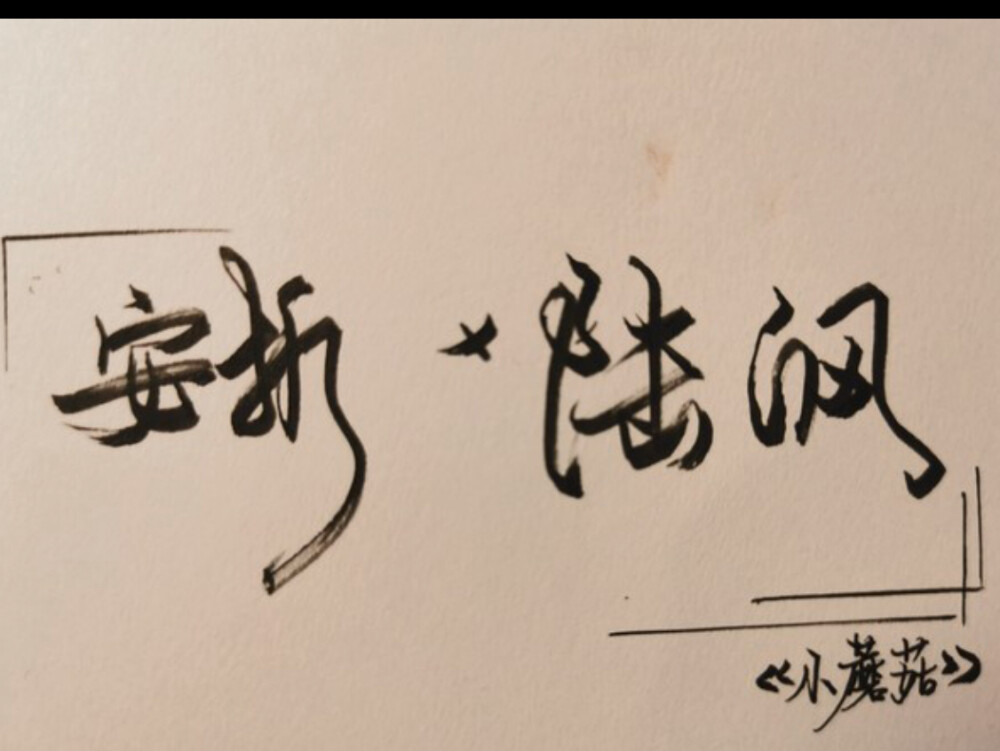 安折×陆沨
《小蘑菇》